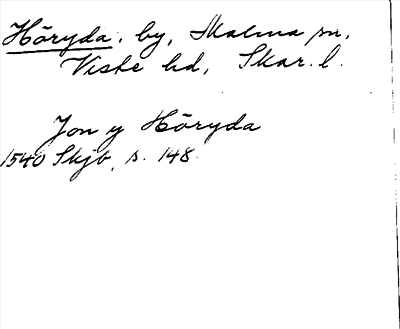 Höryda. by, Malma sn,
Viste hd, Skar. l.
Jon y Höryda
1540 Skjb, s. 148.